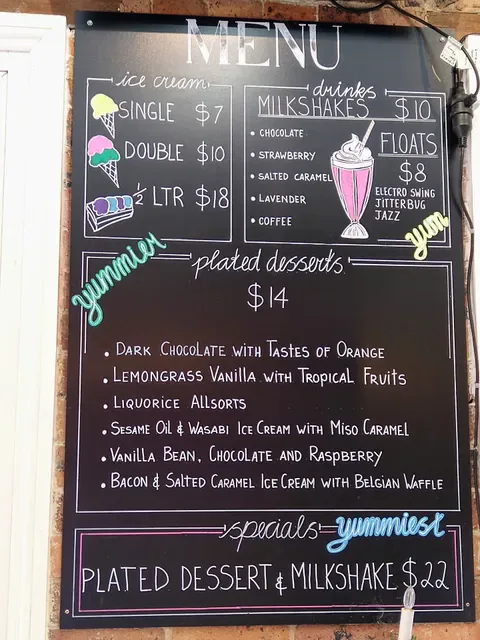 MENU
ice cream
SINGLE $7
DOUBLE $10
½ LTR $18
drinks
MILKSHAKES $10
• CHOCOLATE
• STRAWBERRY
• SALTED CARAMEL
• LAVENDER
• COFFEE
FLOATS
$8
ELECTRO SWING
JITTERBUG
JAZZ
yum
yummier
plated desserts
$14
• DARK CHOCOLATE WITH TASTES OF ORANGE
• LEMONGRASS VANILLA WITH TROPICAL FRUITS
• LIQUORICE ALLSORTS
• SESAME OIL & WASABI ICE CREAM WITH MISO CARAMEL
• VANILLA BEAN, CHOCOLATE AND RASPBERRY
• BACON & SALTED CARAMEL ICE CREAM WITH BELGIAN WAFFLE
specials yummiest
PLATED DESSERT & MILKSHAKE $22